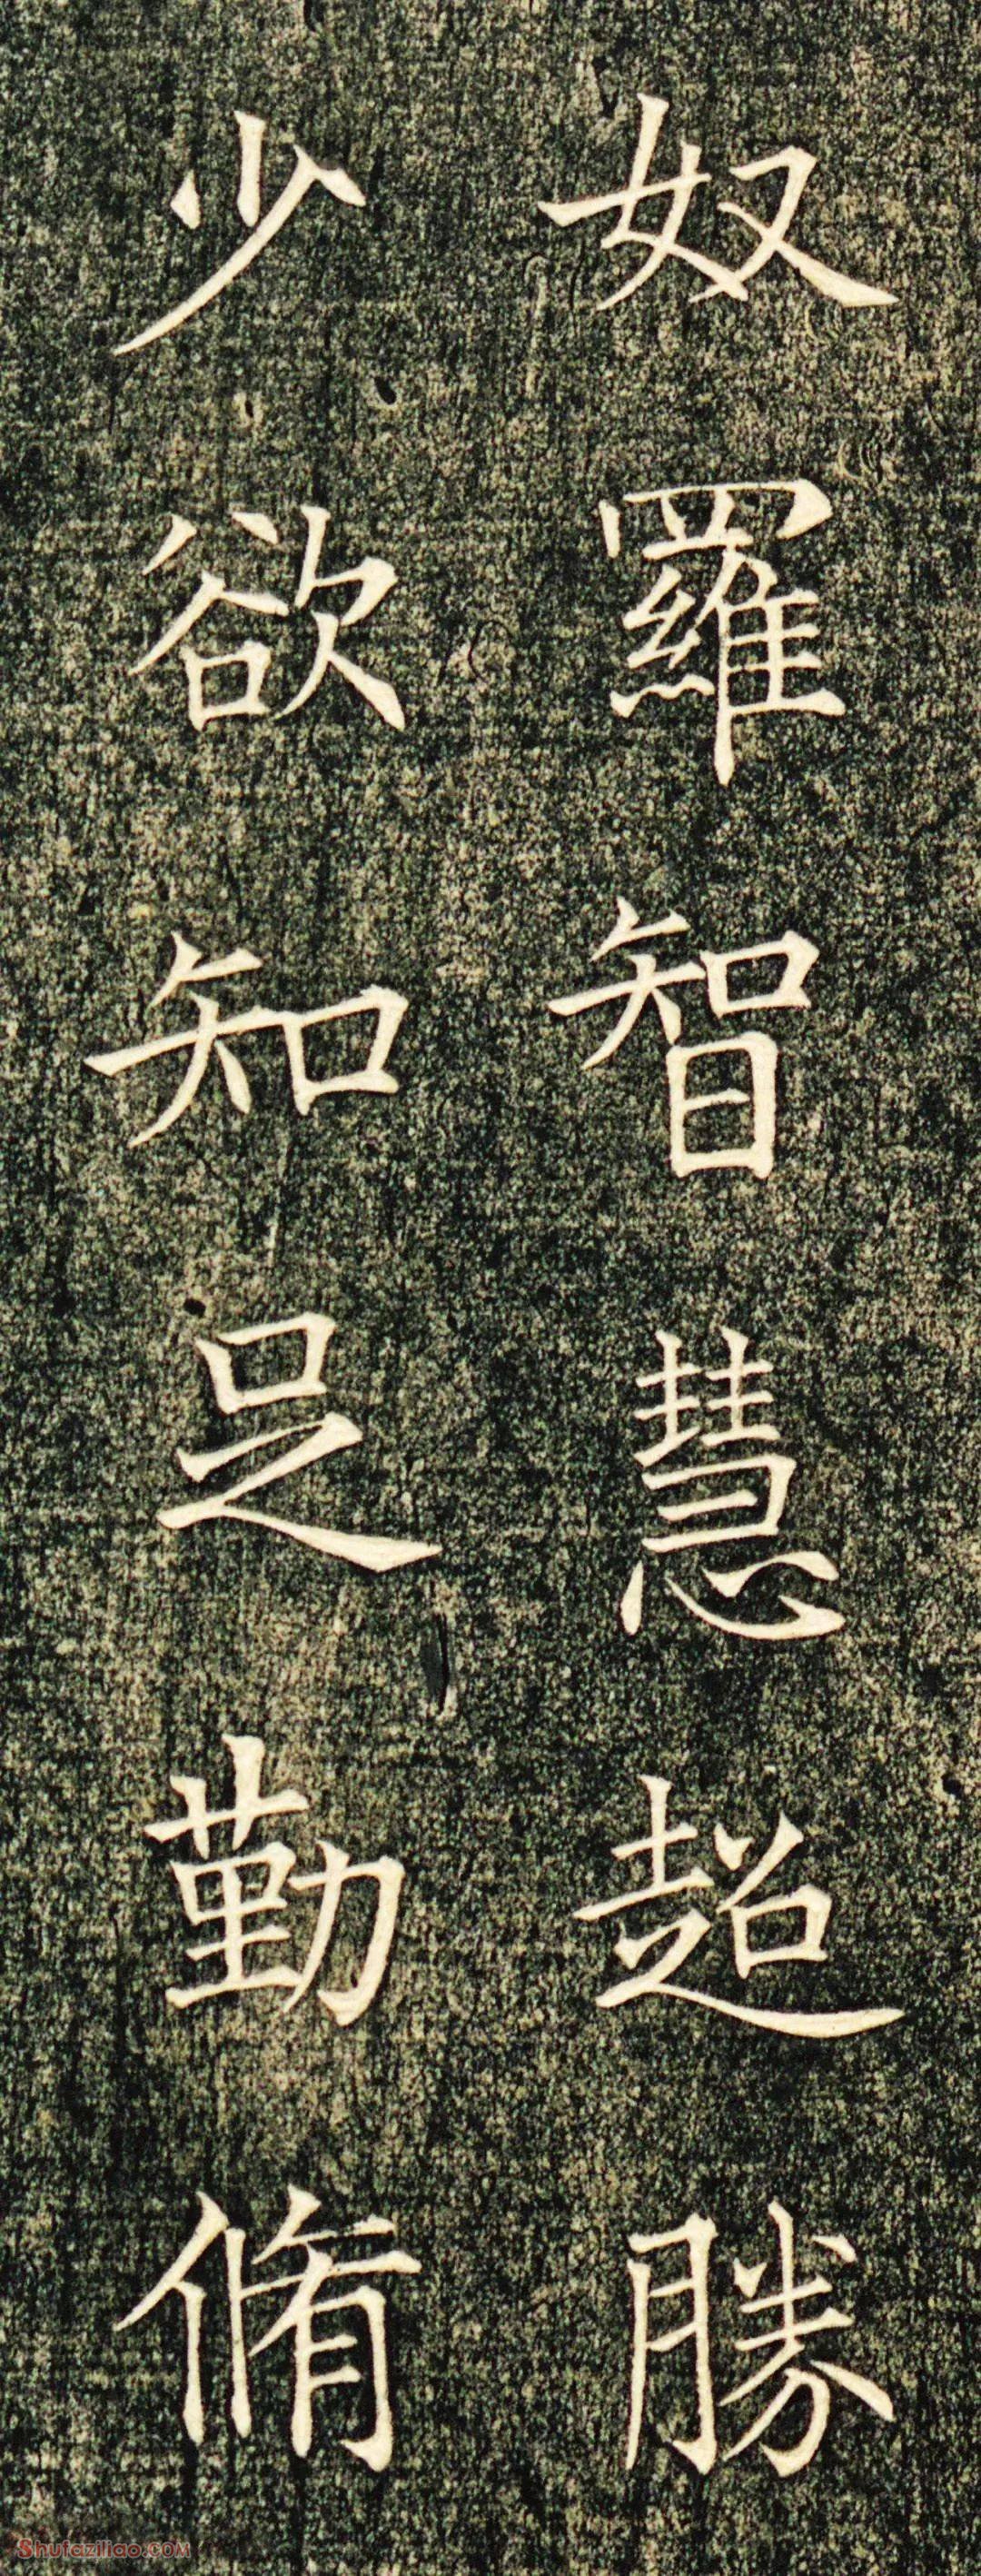 奴羅智慧超勝
少欲知足勤脩
Shufaziliao.COM